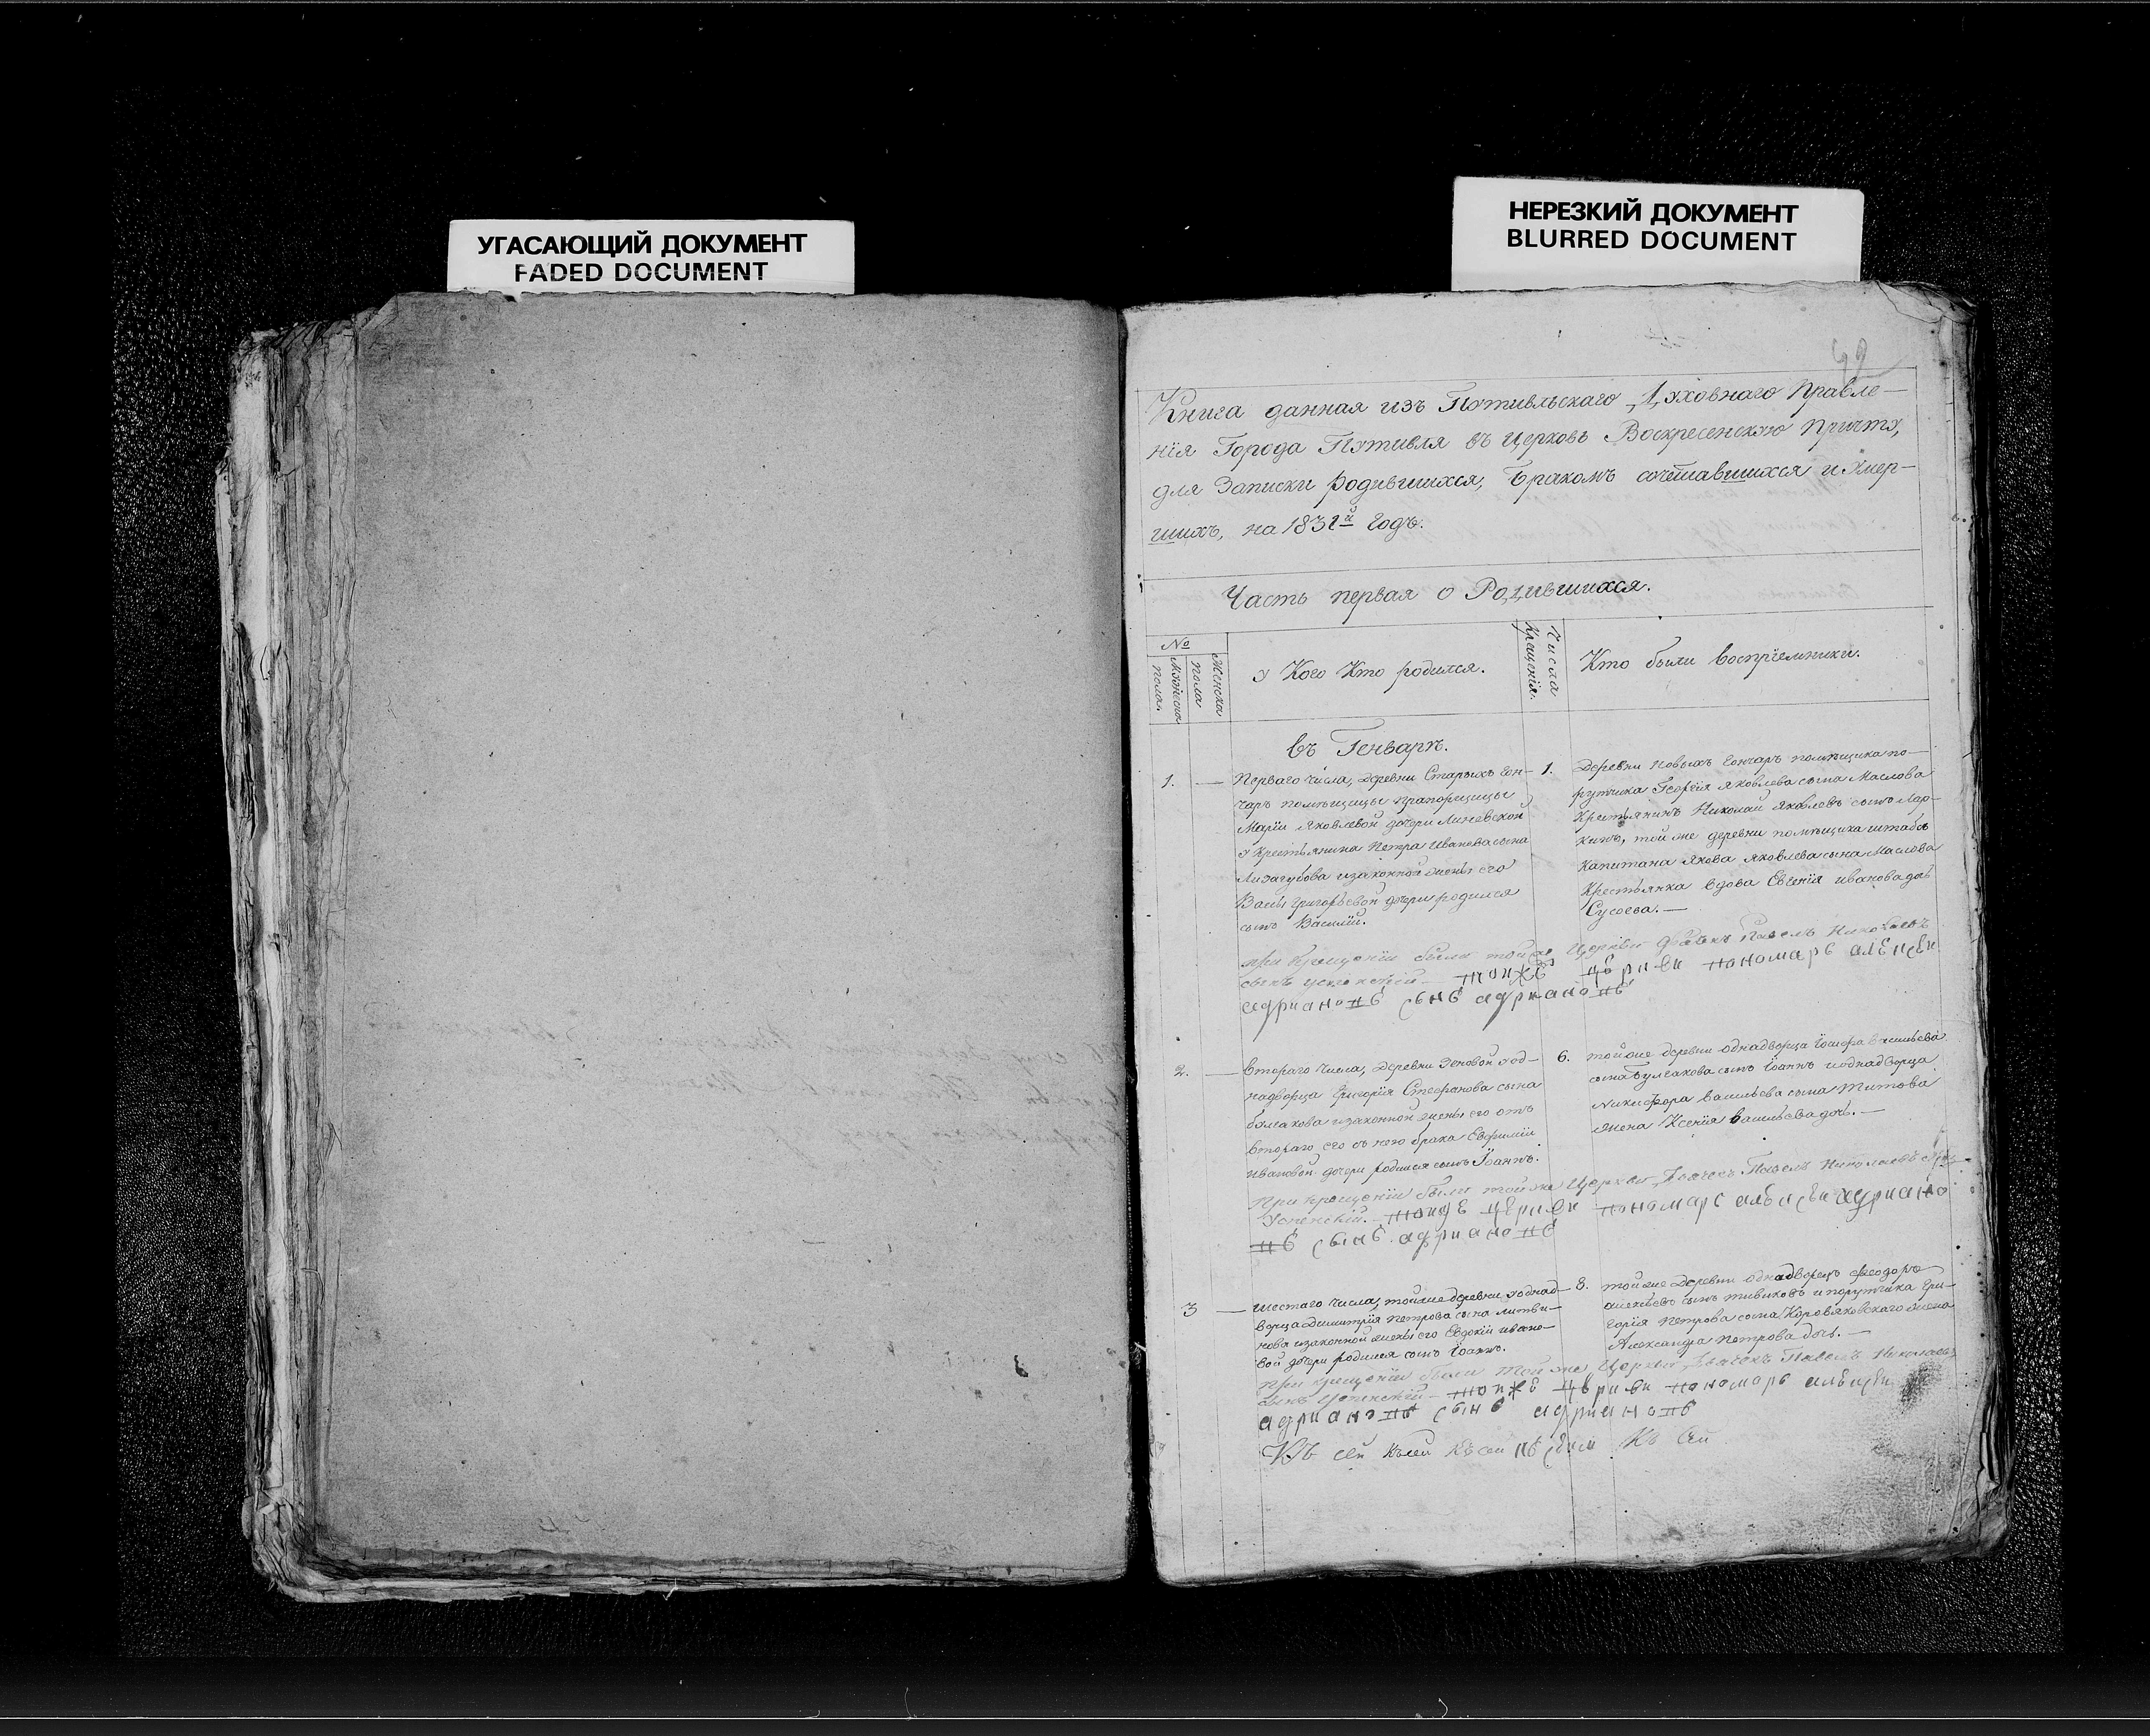 УГАСАЮЩИЙ ДОКУМЕНТ
FADED DOCUMENT
НЕРЕЗКИЙ ДОКУМЕНТ
BLURRED DOCUMENT
49
Книга данная изъ Путивльскаго Духовнаго Правле-
нія Города Путивля въ церковь Воскресенскую причту,
для Записки родившихся, бракомъ сочетавшихся и умер-
шихъ, на 1831й годъ.
Часть первая о Родившихся.
№
Мужеска пола.
Женска пола
у Кого Кто родился.
Числа Крещенія.
Кто были воспріемники.
въ Генварѣ.
1. — Перваго числа, деревни Старыхъ Гон-
чаръ помѣщицы прапорщицы
Маріи Яковлевой дочери Линевской
у крестьянина Петра Иванова сына
Лизагубова и законной жены его
Васы Григорьевой дочери родился
сынъ Василій.
1. Деревни Новыхъ Гончаръ помѣщика по-
рутчика Георгія Яковлева сына Маслова
крестьянинъ Николай Яковлевъ сынъ Лар-
кинъ, той же деревни помѣщика штабсъ
капитана Якова Яковлева сына Маслова
крестьянка вдова Евгенія Иванова дочь
Сусоева. —
при крещеніи были той же Церкви Дьячекъ Павелъ Николаевъ
сынъ Успенскій — тоиже церкви пономарь алексеи
адрианопъ сынъ адрианопъ
2. — Втораго числа, деревни Зеновой у од-
надворца Григорія Стефанова сына
булгакова и законной жены его отъ
втораго его съ нею брака Евфиміи
Ивановой дочери родился сынъ Іоаннъ.
6. той же деревни однадворца Іосифа Васильева
сына Булгакова сынъ Іоаннъ и однадворца
Никифора Васильева сына Титова
жена Ксенія Васильева дочь. —
При крещеніи были той же Церкви Дьячекъ Павелъ Николаевъ сынъ
Успенскій. — тоиже церкви пономарь алексеи адриано
пъ сынъ адрианопъ
3 — шестаго числа, той же деревни у однад-
ворца Димитрія Петрова сына Литви-
нова и законной жены его Евдокіи Ивано-
вой дочери родился сынъ Іоаннъ.
8. той же деревни однадворецъ Феодоръ
сынъ и порутчика Гри-
горія Петрова сына Коровяковскаго жена
Александра Петрова дочь. —
При крещеніи были той же Церкви Дьячекъ Павелъ Николаевъ
сынъ Успенскій — тоиже церкви пономарь алексеи
адрианопъ сынъ адрианопъ
Къ сей къ сей къ сей Къ сей